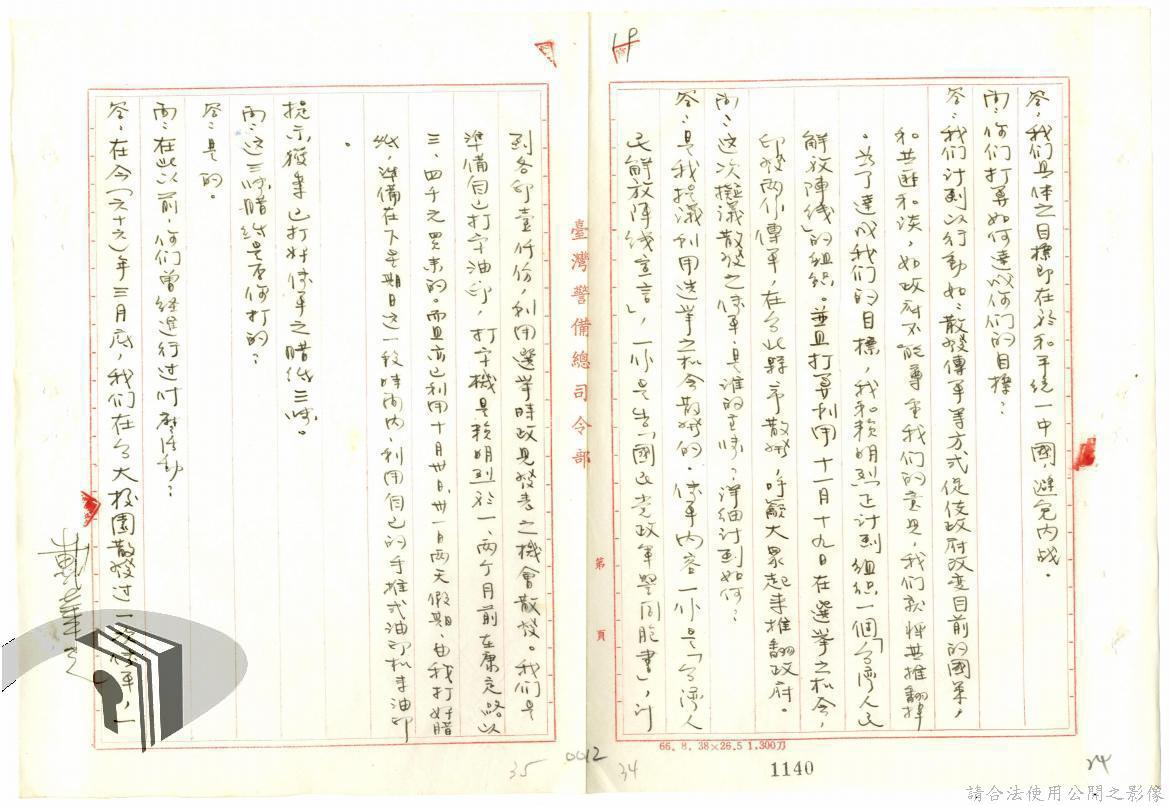 答：我们具体之目標即在於和平統一中國，避免内战。
問：你们打算如何達成你们的目標？
答：我们計劃以行動如：散發傳單等方式促使政府改变目前的國策，
和共匪和谈，如政府不能尊重我们的意見，我们就將其推翻掉
。為了達成我们的目標，我和賴明烈正計劃組織一個「台湾人民
解放陣线」的組织。並且打算利用十一月十九日在選挙之机会，
印發两份傳單，在台北縣市散發，呼籲大眾起來推翻政府。
問：这次擬議散發之传單，是谁的主修？详细計劃如何？
答：是我提議利用选挙之机会散發的。传單内容一份是「台湾人
民解放阵线宣言」，一份是告「國民党政軍警同胞書」，计
到各印壹仟份，利用選挙時政見發表之機會散發。我们是
準備自己打字油印，打字機是賴明烈於一、两个月前在康定路以
三、四千元買来的。而且亦已利用十月卅日、卅一日两天假期，由我打好腊
纸，準備在下星期日这一段時間内，利用自己的手推式油印机来油印
。
提示獲案已打好传單之腊纸三張。
問：这三張腊纸是否你打的？
答：是的。
問：在此以前，你们曾经進行过什麼活動？
答：在今（六十六）年三月底，我们在台大校園散發过一次传單，一
臺灣警備總司令部
第 頁
66. 8. 38×26.5 1.300刀
1140
19
0012
34
35
24
請合法使用公開之影像